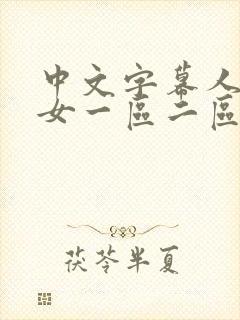 中文字幕人
女一區二區
茯苓半夏